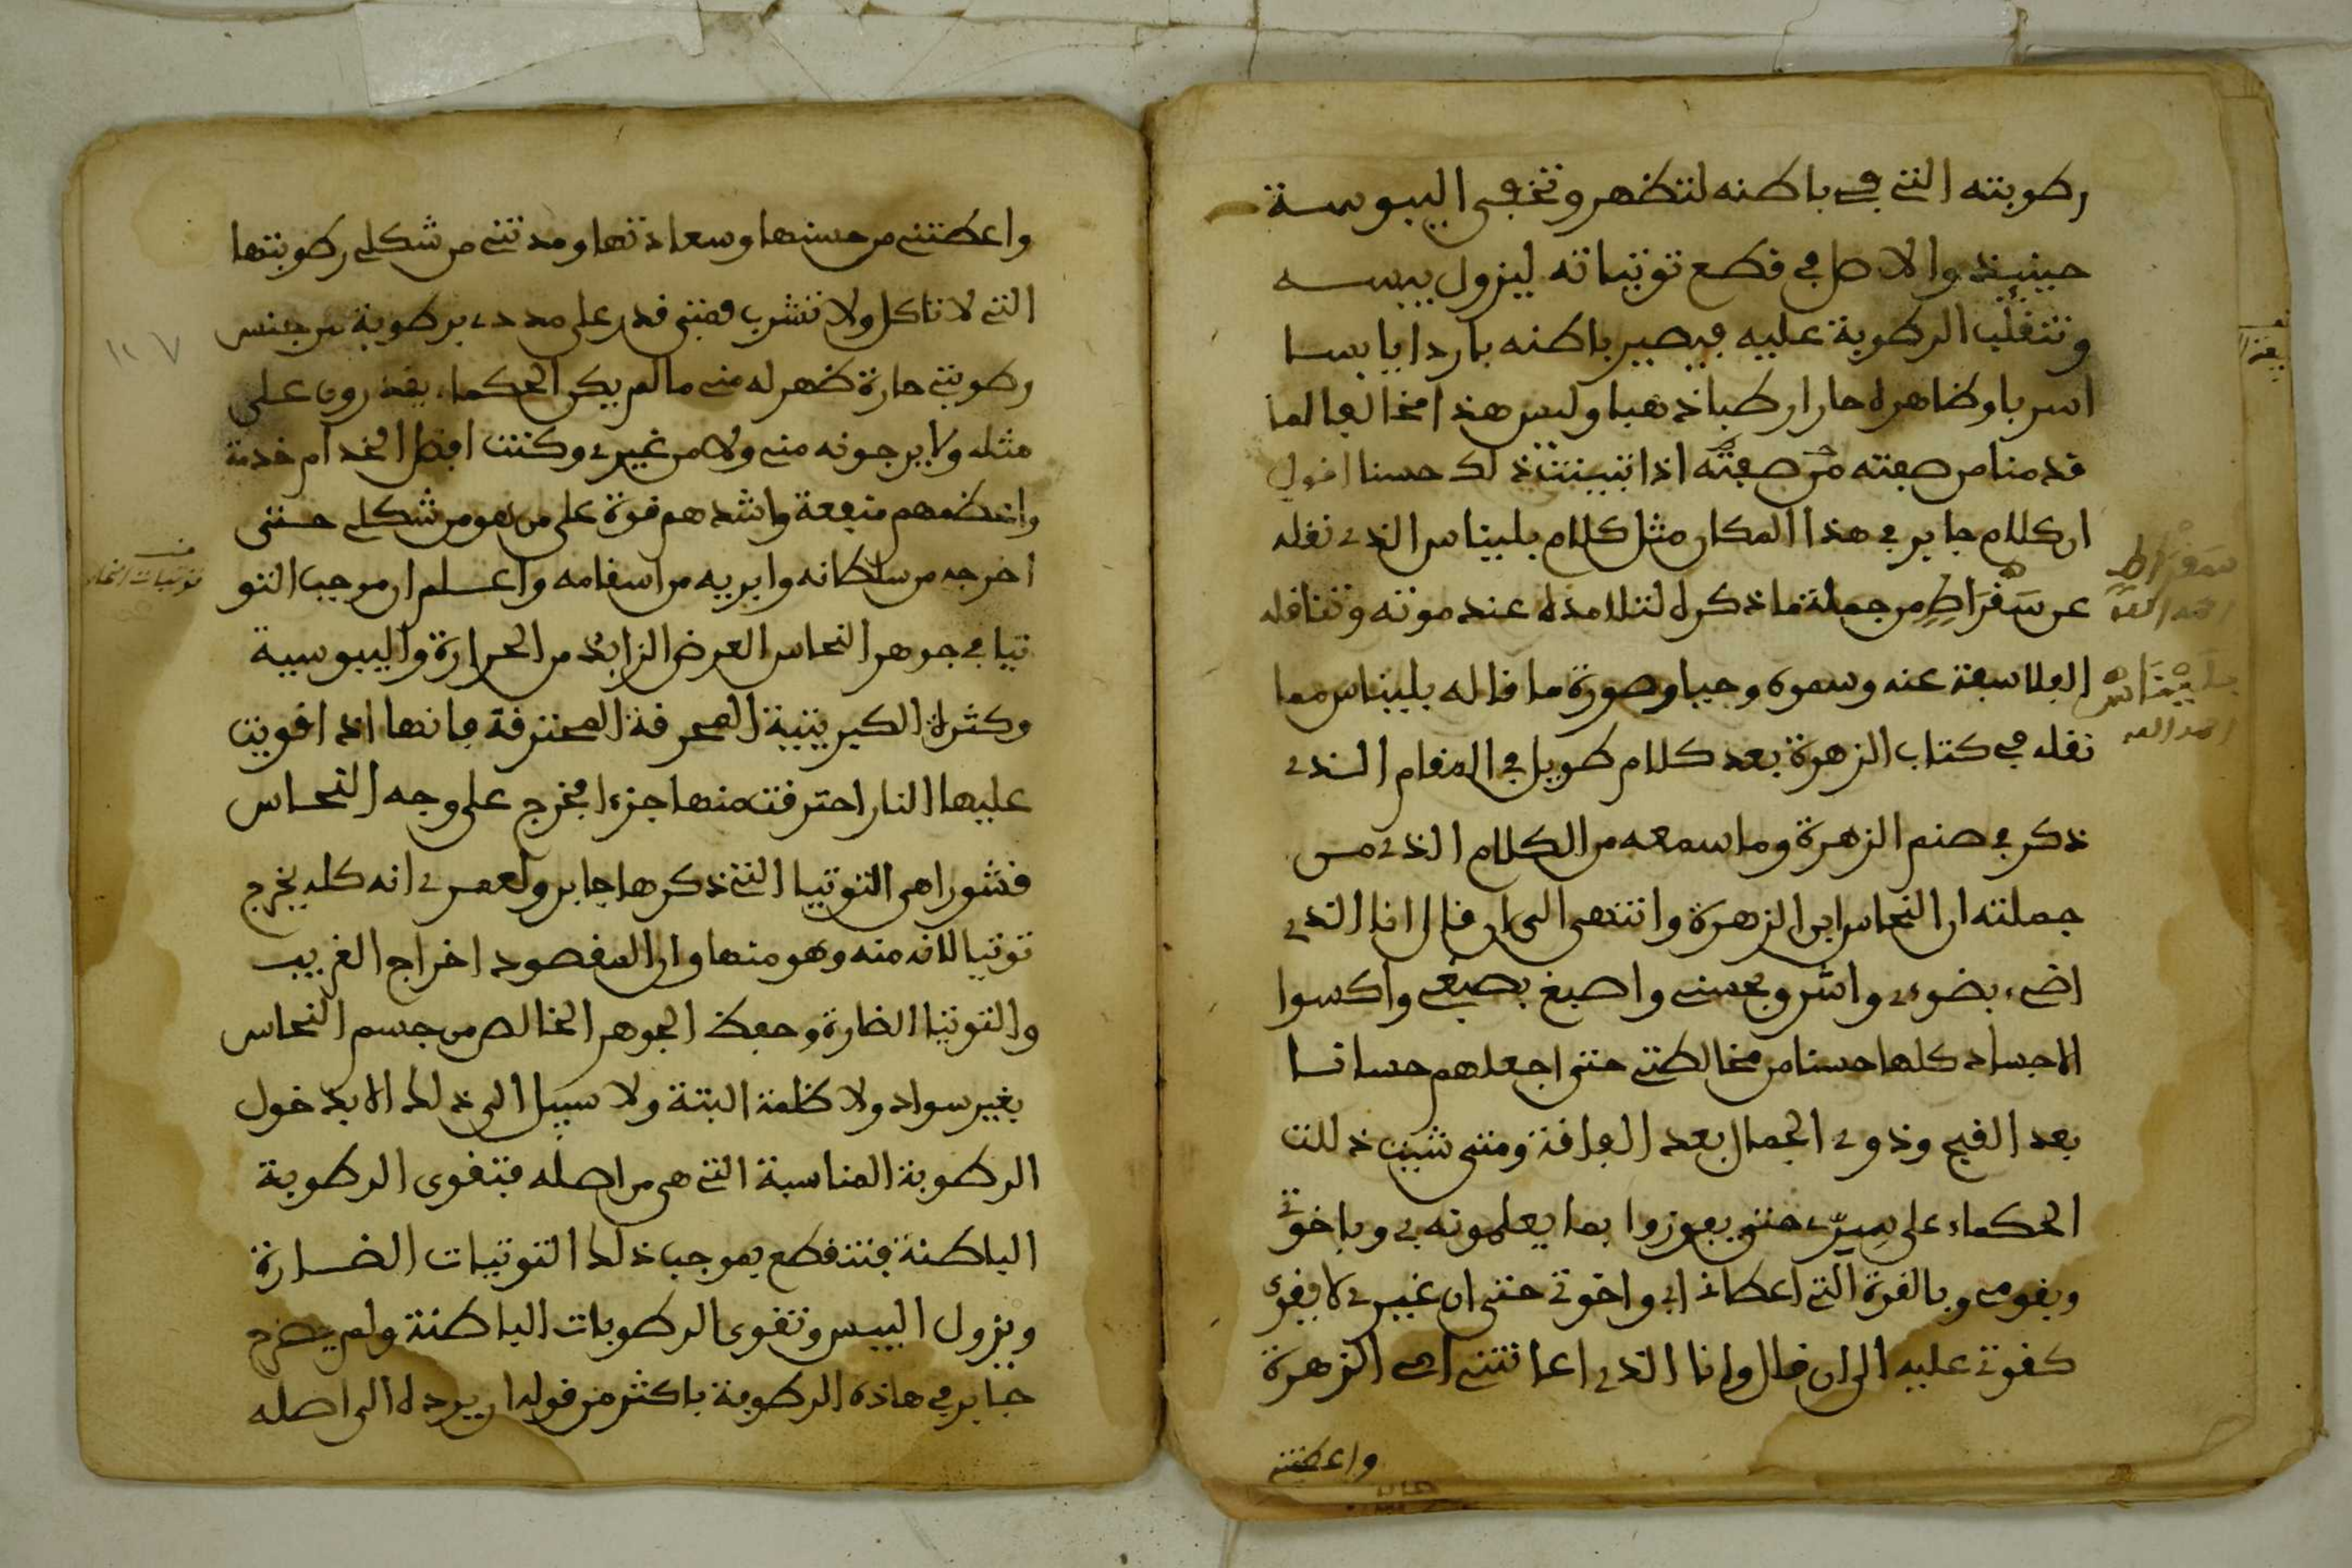 رطوبته التي في باطنه لتظهر وتخفى اليبوسة
حينيذ والاصل في قطع توتياته ليزول يبسه
وتتغلب الرطوبة عليه فيصير باطنه باردا يابسا
اسربا وظاهره حارا رطبا ذهبا وليس هذا مخالفا لما
قدمنا من صفته من صفته اذا تبينت ذلك حسنا اقول
ان كلام جابر في هذا المكان مثل كلام بليناس الذي نقله
عن سَقْرَاطِ من جملة ما ذكره لتلامذه عند موته وتناقله
الفلاسفة عنه وسموه وحيا وصورة ما قاله بليناس مما
نقله في كتاب الزهرة بعد كلام طويل في المقام الذي
ذكر في صنم الزهرة وما سمعه من الكلام الذي من
جملته ان النحاس ابن الزهرة وانتهى الى ان قال انا الذي
اضيء بضوءي واشرق بحسني واصبغ بصبغي واكسوا
الاجساد كلها حسنا من مخالطتي حتى اجعلهم حسانا
بعد القبح وذوي الجمال بعد الفاقة ومتى شيت ذللت
الحكماء على سِرّي حتى يفوزوا بما يعلمونه بي وباخوتي
وبقومي وبالقوة التي اعطاني ابي واخوتي حتى ان غيري لا يقوى
كقوتي عليه الى ان قال وانا الذي اعانتني امي الزهرة
واعطتني
سَقْرَاطِ
بَلِينَاس
واعطتني من حسنها وسعادتها ومدتني من شكلي رطوبتها
التي لا تاكل ولا تشرب فمتى قدر على مددي برطوبة من جنس
رطوبتي حارة ظهر له مني ما لم يكن الحكماء يقدرون على
مثله ولا يرجونه مني ولا من غيري وكنت افضل الخدام خدمة
واعظمهم منفعة واشدهم قوة على من هو من شكلي حتى
اخرجه من سلطانه وابريه من اسقامه واعلم ان موجب التو
تيا في جوهر النحاس العرض الزايد من الحرارة واليبوسية
وكثرة الكبريتية المحرقة المحترقة فانها اذا قويت
عليها النار احترقت منها جزءا فخرج على وجه النحاس
قشورا هي التوتيا التي ذكرها جابر ولعمري انه كله يخرج
توتيا لانه منه وهو منها وان المقصود اخراج الغريب
والتوتيا الضارة وحفظ الجوهر الخالص من جسم النحاس
بغير سواد ولا ظلمة البتة ولا سبيل الى ذلك الا بدخول
الرطوبة المناسبة التي هي من اصله فتقوى الرطوبة
الباطنة فتنقطع بموجب ذلك التوتيات الضارة
ويزول اليبس وتقوى الرطوبات الباطنة ولم يصرح
جابر في هاذه الرطوبة باكثر من قوله ان يرده الى اصله
توتيات النحاس
١٢٧